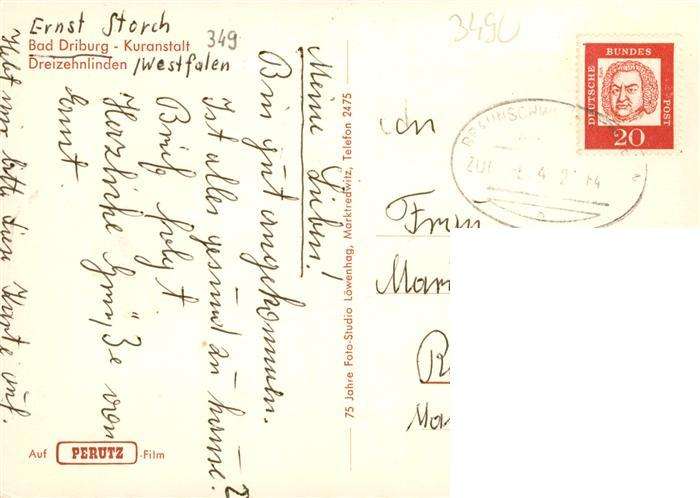 Ernst Storch
Bad Driburg - Kuranstalt
Dreizehnlinden /Westfalen
349
3490
Meine Lieben!
Bin gut angekommen.
Ist alles gesund zu hause?
Brief folgt
Herzliche Grüße von
Ernst
Hebt mir bitte diese Karte auf.
Auf PERUTZ -Film
75 Jahre Foto-Studio Löwenhag, Marktredwitz, Telefon 2475
DEUTSCHE BUNDES POST
20
BRAUNSCHW
ZUG
4 2 64
an
Frau